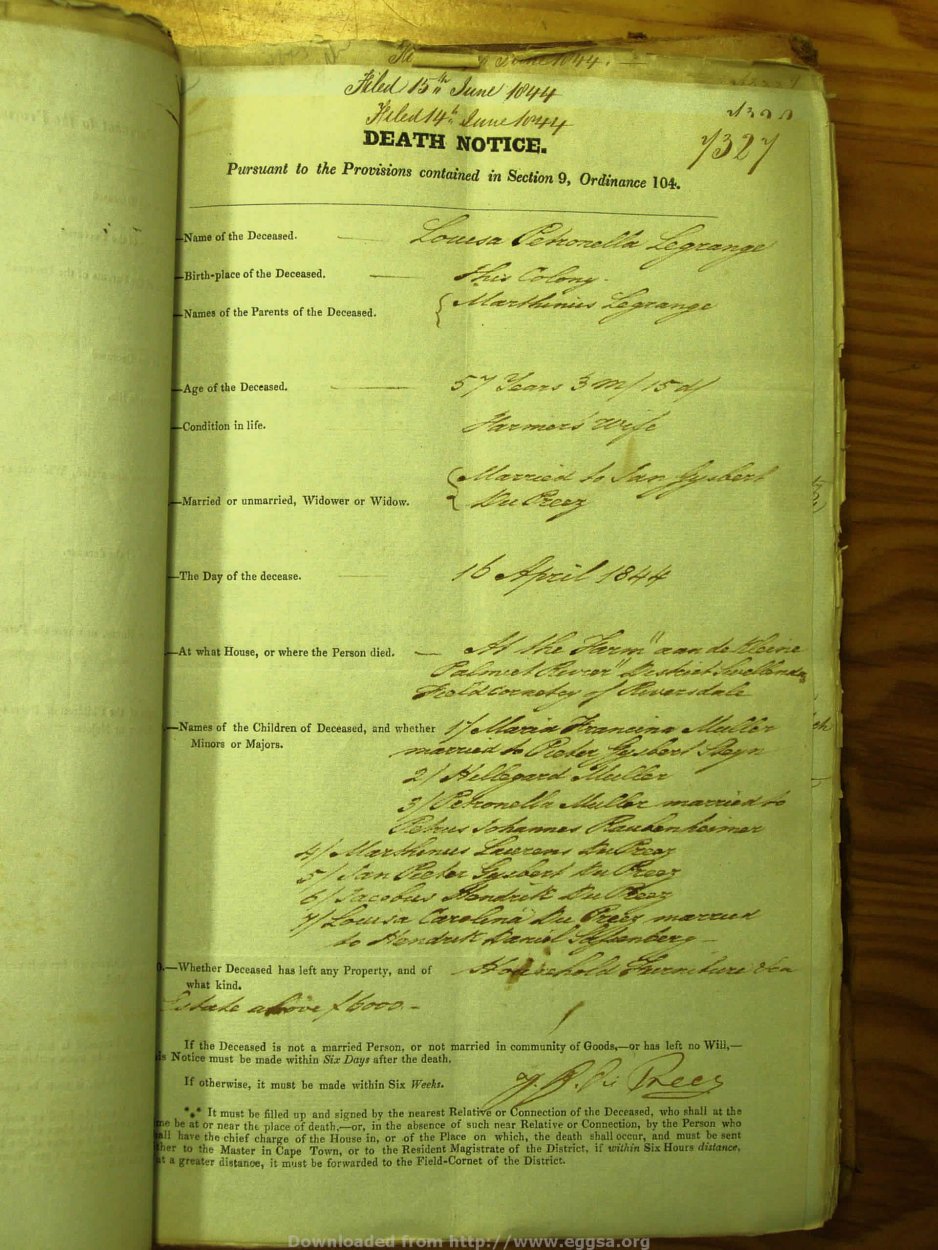 June 1844.
Filed 15th June 1844
Filed 14th June 1844
7327
DEATH NOTICE.
Pursuant to the Provisions contained in Section 9, Ordinance 104.
—Name of the Deceased. Louesa Petronella Legrange
—Birth-place of the Deceased. this Colony.
—Names of the Parents of the Deceased. { Marthinus Legrange
—Age of the Deceased. 57 Years 3 m/ 15 d/
—Condition in life. Farmers wife
{ Married to Jan Gysbert
—Married or unmarried, Widower or Widow. Du Preez
—The Day of the decease. 16 April 1844
—At what House, or where the Person died. — At the Farm "aan de Kleine
Palmiet Rivier" District Swellendam
Fieldcornetcy of Riversdale
—Names of the Children of Deceased, and whether 1/ Maria Francina Muller
Minors or Majors. married to Pieter Gysbert Steyn
2/ Hillegard Muller
3/ Petronella Muller married to
Petrus Johannes Raubenheimer
4/ Marthinus Laurens Du Preez
5/ Jan Pieter Gysbert Du Preez
6/ Jacobus Hendrik Du Preez
7/ Louisa Carolina Du Preez married
to Hendrik Daniel
—Whether Deceased has left any Property, and of Household Furniture &ca
what kind.
Estate above £6000 —
If the Deceased is not a married Person, or not married in community of Goods,—or has left no Will,—
is Notice must be made within Six Days after the death.
If otherwise, it must be made within Six Weeks. Du Preez
*** It must be filled up and signed by the nearest Relative or Connection of the Deceased, who shall at the
me be at or near the place of death,—or, in the absence of such near Relative or Connection, by the Person who
all have the chief charge of the House in, or of the Place on which, the death shall occur, and must be sent
ther to the Master in Cape Town, or to the Resident Magistrate of the District, if within Six Hours distance,
at a greater distance, it must be forwarded to the Field-Cornet of the District.
Downloaded from http://www.eggsa.org